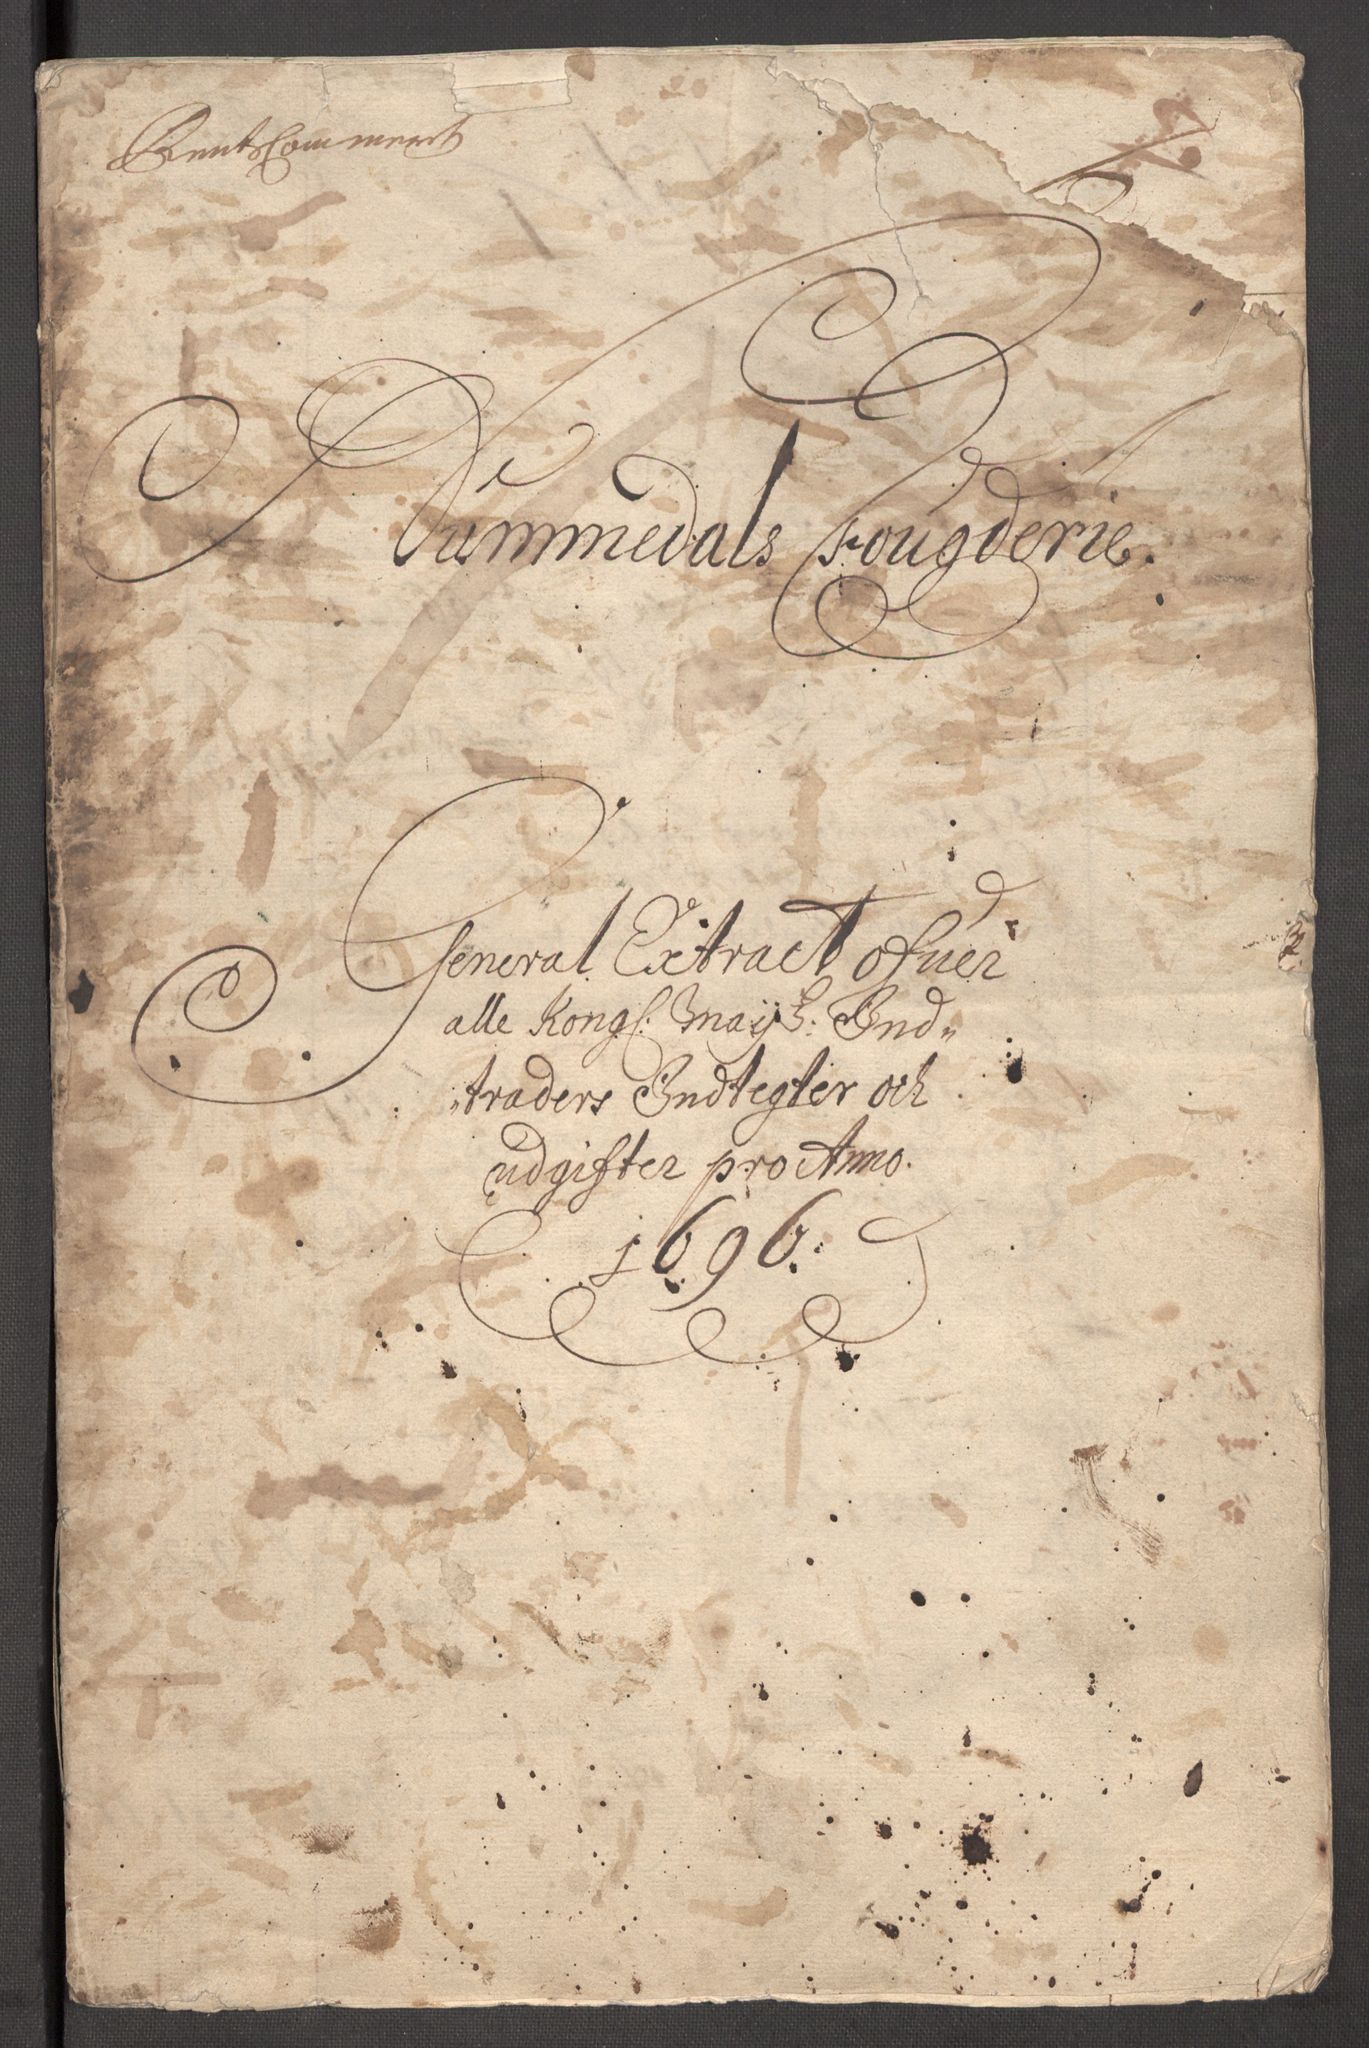 RentsCammert
Nummedals Fougderie.
General Extract ofuer
alle Kongl. Maÿ: Ind„
„traders Indtegter och
udgifter pro Anno.
1696.